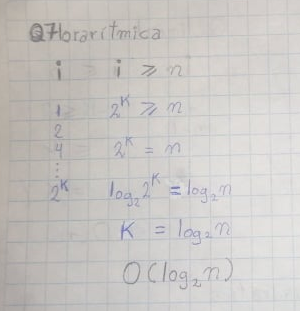 Q7 lorarítmica
i i ≥ n
1 2^K ≥ n
2
4 2^K = n
⋮
2^K log₂2^K = log₂n
K = log₂n
O(log₂n)